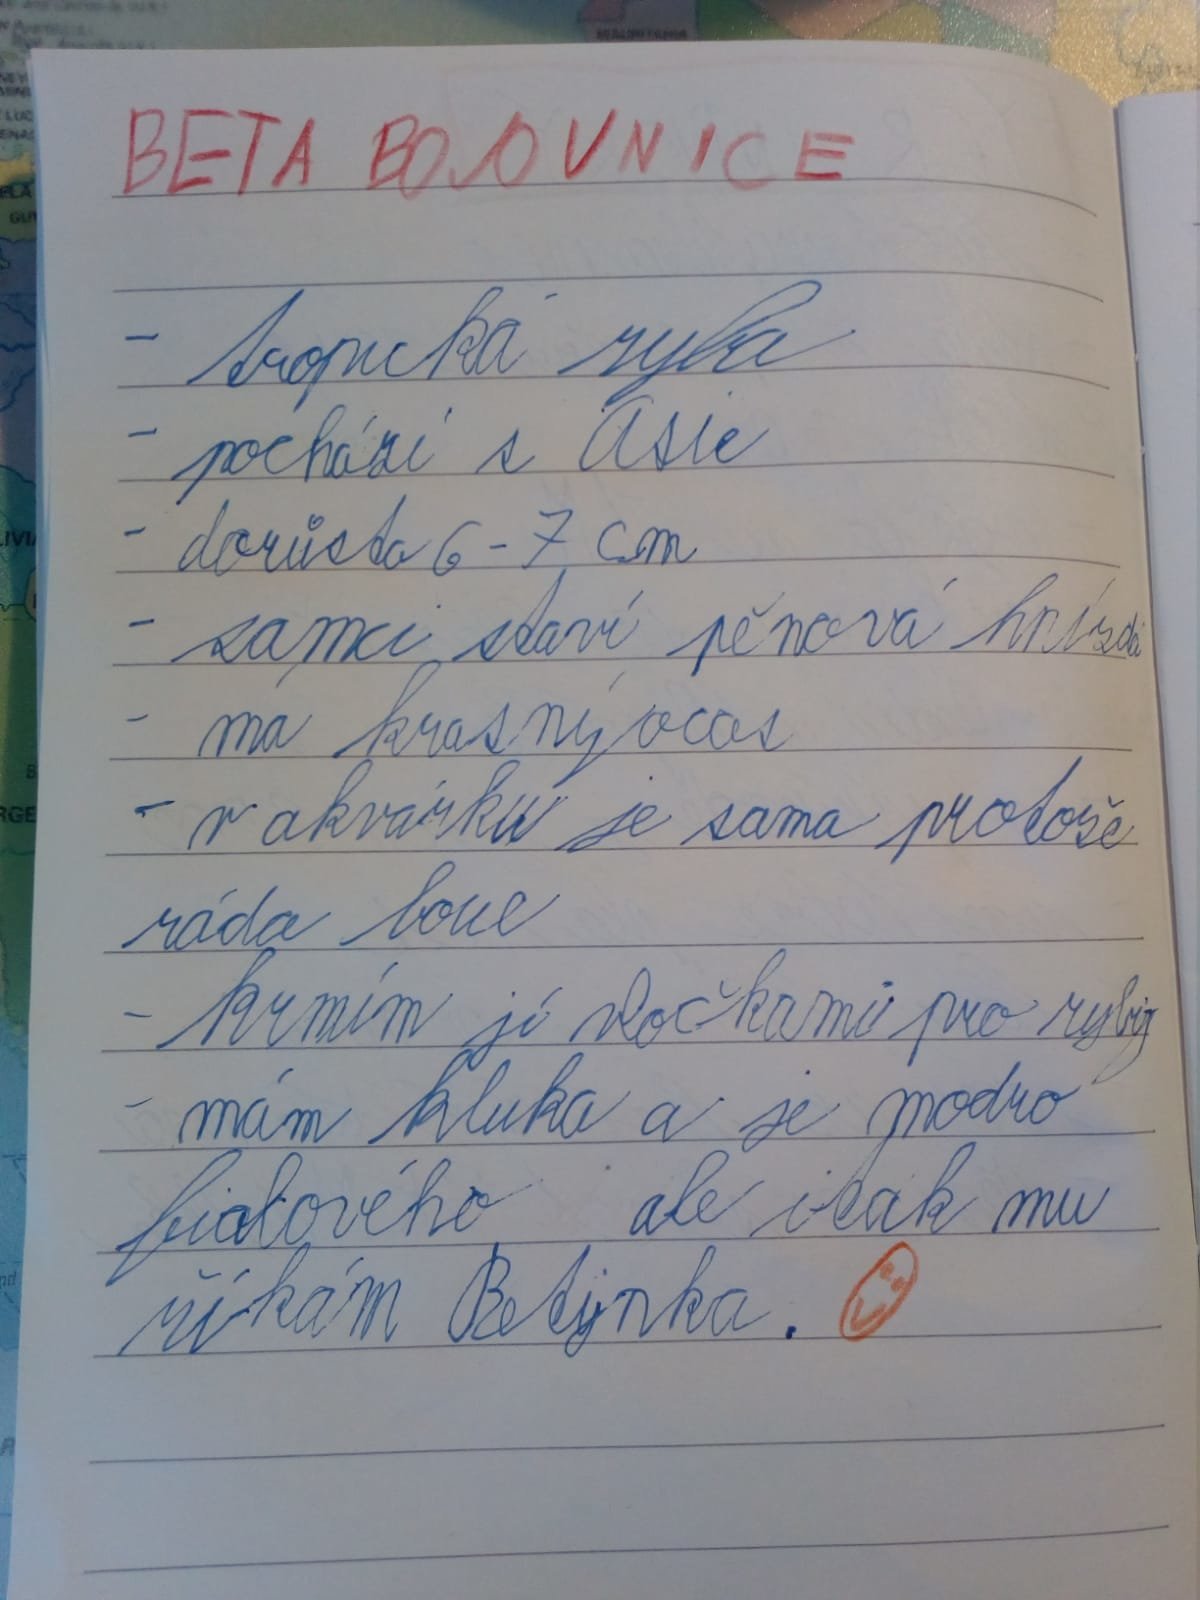 BETA BOJOVNICE
- tropická ryba
- pochází s Asie
- dorůsta 6-7 cm
- samci staví pěnová hnízda
- má krasný ocas
- v akvárku je sama protože
ráda bouе
- krmím jí vločkami pro ryby
- mám kluka a je modro
fialového ale i tak mu
říkám Betynka.